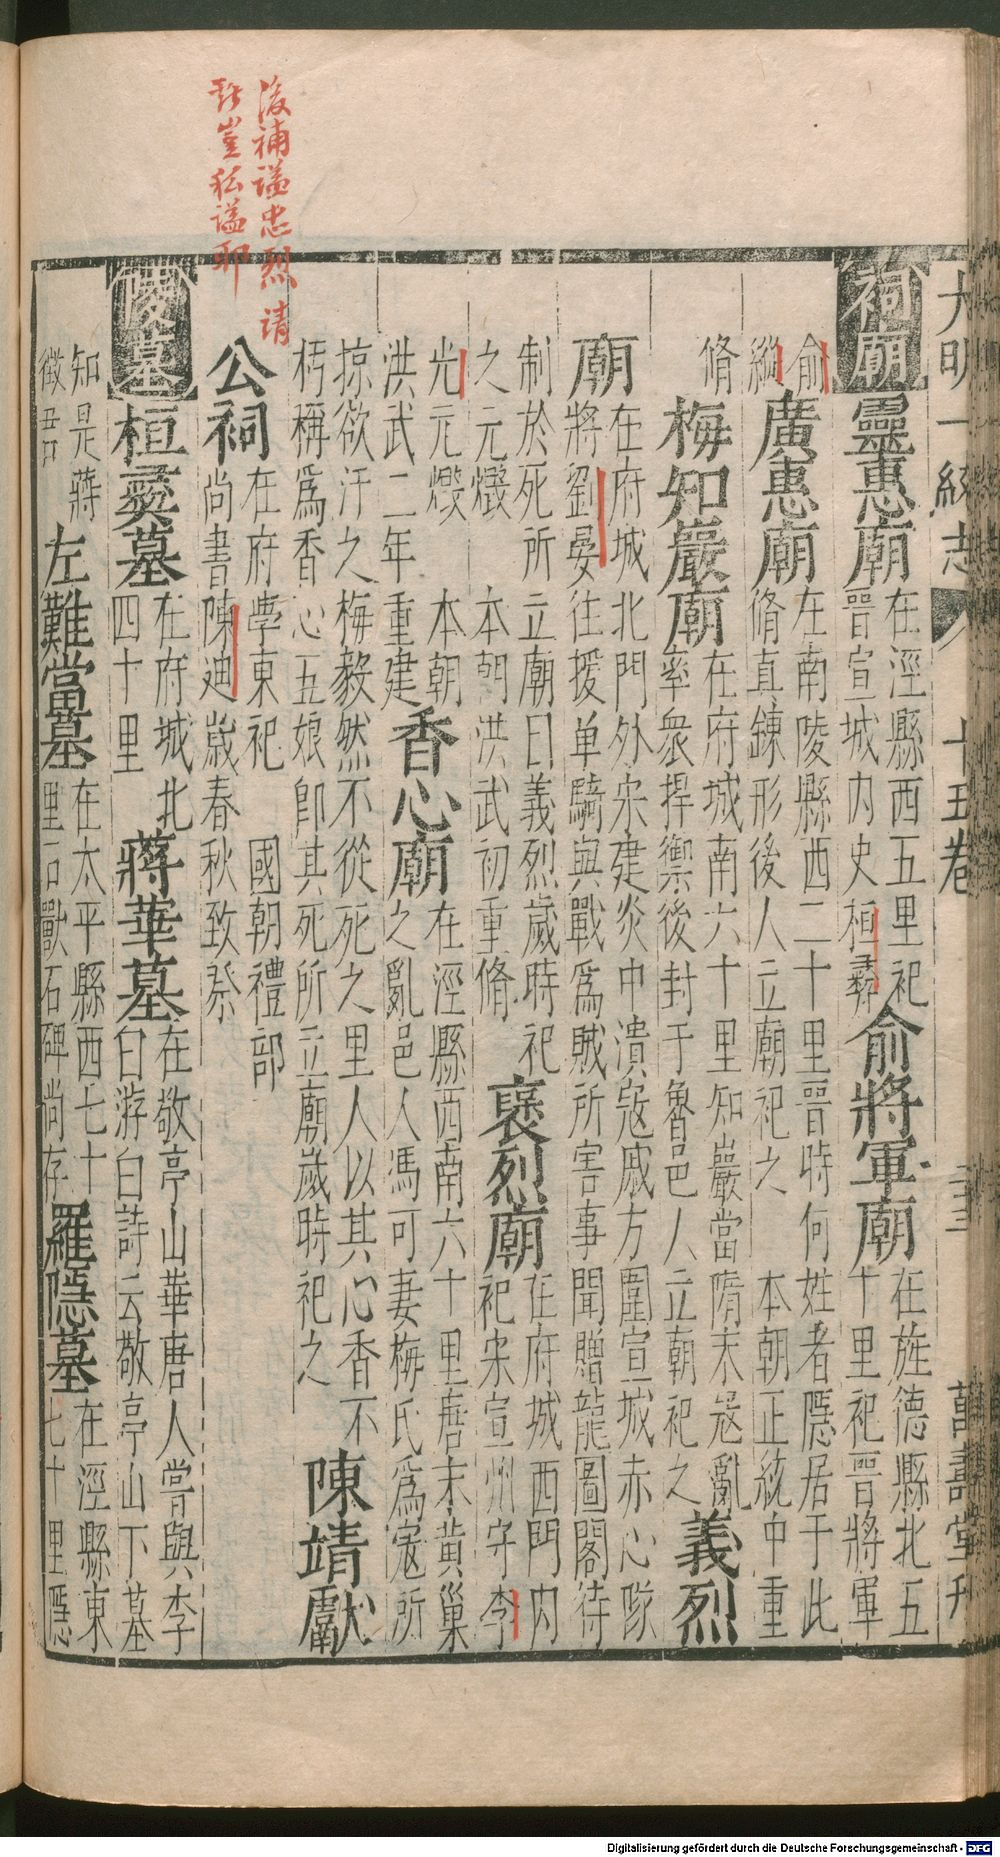 大明一統志 十五卷 二十三 萬壽堂刋
祠廟 靈惠廟 在涇縣西五里祀晉宣城內史桓彝 俞將軍廟 在旌德縣北五十里祀晉將軍
俞縱 廣惠廟 在南陵縣西二十里晉時何姓者隱居于此脩真鍊形後人立廟祀之 本朝正統中重
脩 梅知巖廟 在府城南六十里知巖當隋末㓂亂率衆捍禦後封于魯邑人立朝祀之 義烈
廟 在府城北門外宋建炎中潰㓂戚方圍宣城赤心隊將劉晏往援单騎與戰爲賊所害事聞贈龍圖閣待
制於死所立廟曰義烈歲時祀之元燬 本朝洪武初重脩 褒烈廟 在府城西門內祀宋宣州守李
光元燬 本朝洪武二年重建 香心廟 在涇縣西南六十里唐末黃巢之亂邑人馮可妻梅氏爲㓂所
掠欲汙之梅毅然不從死之里人以其心香不朽稱爲香心五娘卽其死所立廟歲時祀之 陳靖獻
公祠 在府學東祀 國朝禮部尚書陳迪歲春秋致祭
陵墓 桓彝墓 在府城北四十里 蔣華墓 在敬亭山華唐人嘗與李白游白詩云敬亭山下墓
知是蔣徵君 左難當墓 在太平縣西七十里石獸石碑尚存 羅隱墓 在涇縣東七十里隱
後補謚忠烈 請
獻豈私謚耶
Digitalisierung gefördert durch die Deutsche Forschungsgemeinschaft - DFG